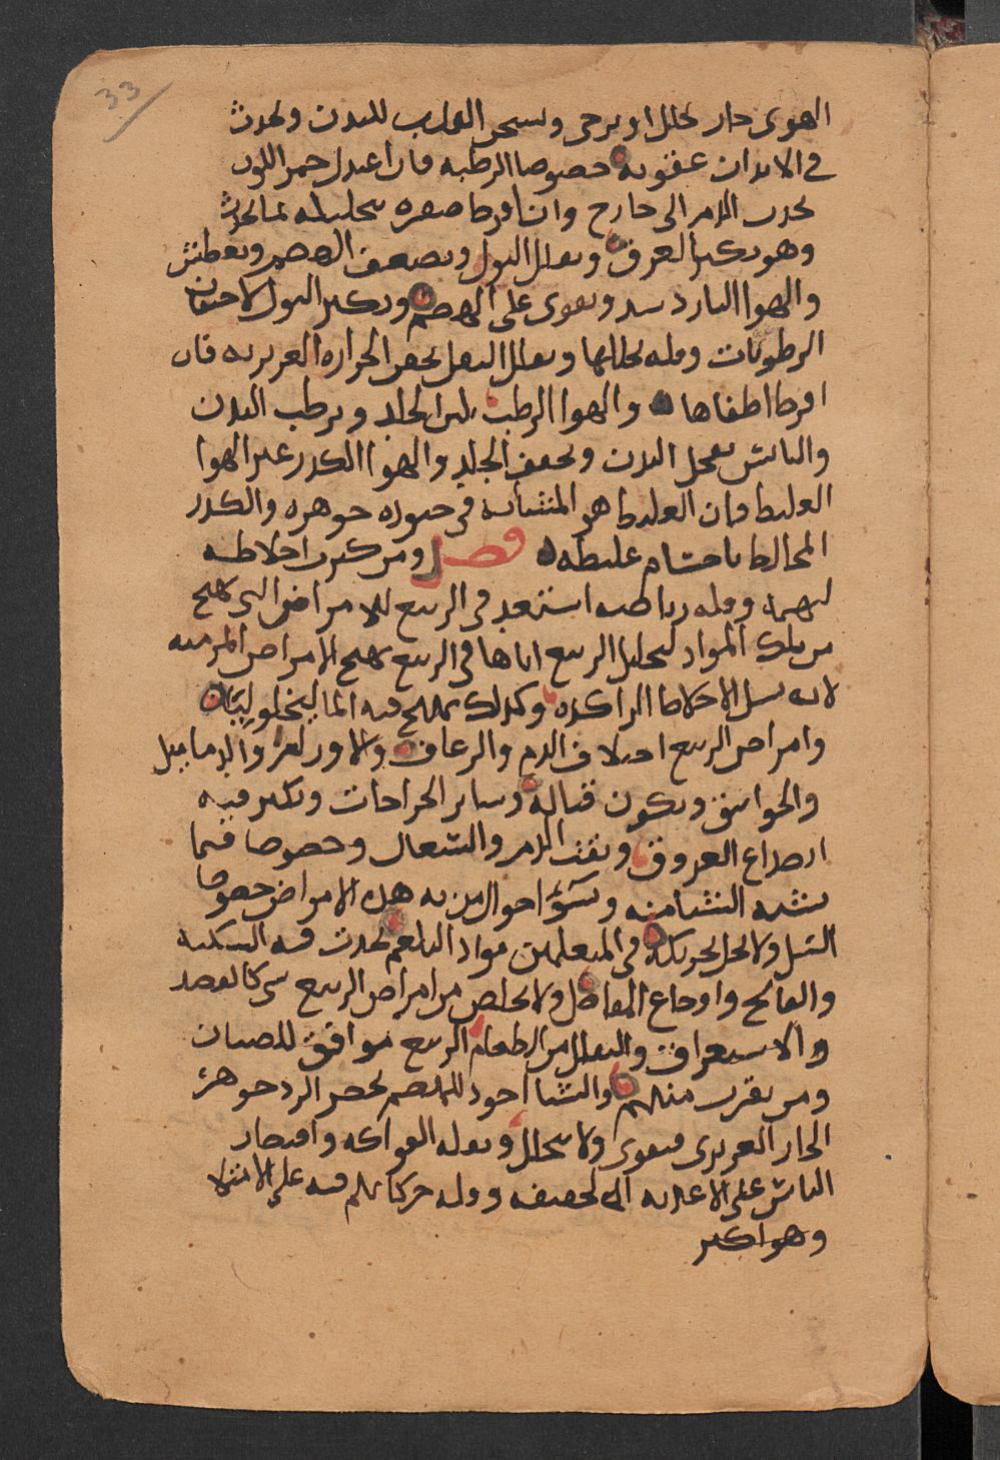 33
الهوى حار يحلل او يرخى ويسخن القلب للبدن ويحدث
فى الابدان عفونه خصوصا الرطبه فان اعتدل حمر اللون
يجذب الدم الى خارج وان افرط صفره بتحليله لما يجذب
وهو يكثر العرق ويقلل البول ويضعف الهضم ويعطش
والهوا البارد يشد ويقوى على الهضم ويكثر البول لاحتقان
الرطوبات وقله تحللها ويقلل الثفل بحصر الحراره الغريزيه فان
افرط اطفاها والهوا الرطب يلين الجلد ويرطب البدن
واليابس يقحل البدن ويجفف الجلد والهوا الكدر غير الهوا
الغليظ فان الغليظ هو المتشابه فى جوهره والكدر
المخالط باجسام غليظه فصل ومن كثرت اخلاطه
لنهمه وقله رياضته استعد فى الربيع للامراض التى تهيج
من تلك المواد لتحليل الربيع اياها فى الربيع تهيج الامراض المزمنه
لانه يسيل الاخلاط الراكده وكذلك تهيج فيه الماليخوليا
وامراض الربيع اختلاف الدم والرعاف والاورام والدماميل
والخوانيق ويكون قتاله وساير الخراجات ويكثر فيه
انصداع العروق ونفث الدم والسعال وخصوصا فيما
يشبه الشتا منه ويسؤ احوال من به هذه الامراض خصوصا
السل ولاجل تحريكه فى المبلغمين مواد البلغم تحدث فيه السكته
والفالج واوجاع المفاصل ولا يخلص من امراض الربيع شى كالفصد
والاستفراق والتقلل من الطعام الربيع موافق للصبيان
ومن يقرب منهم والشتا اجود للهضم لحصر البرد جوهر
الحار الغريزى فيقوى ولا يتحلل ولقله الفواكه واقتصار
الناس على الاغذيه وقله حركاتهم فيه على الامتلا
وهو اكثر